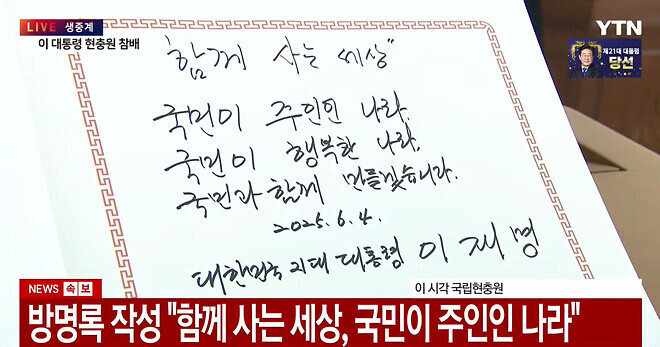 LIVE 생중계
이 대통령 현충원 참배
YTN
제21대 대통령
당선
함께 사는 세상"
국민이 주인인 나라,
국민이 행복한 나라,
국민과 함께 만들겠습니다.
2025.6.4.
대한민국 21대 대통령 이재명
이 시각 국립현충원
NEWS 속보
방명록 작성 "함께 사는 세상, 국민이 주인인 나라"